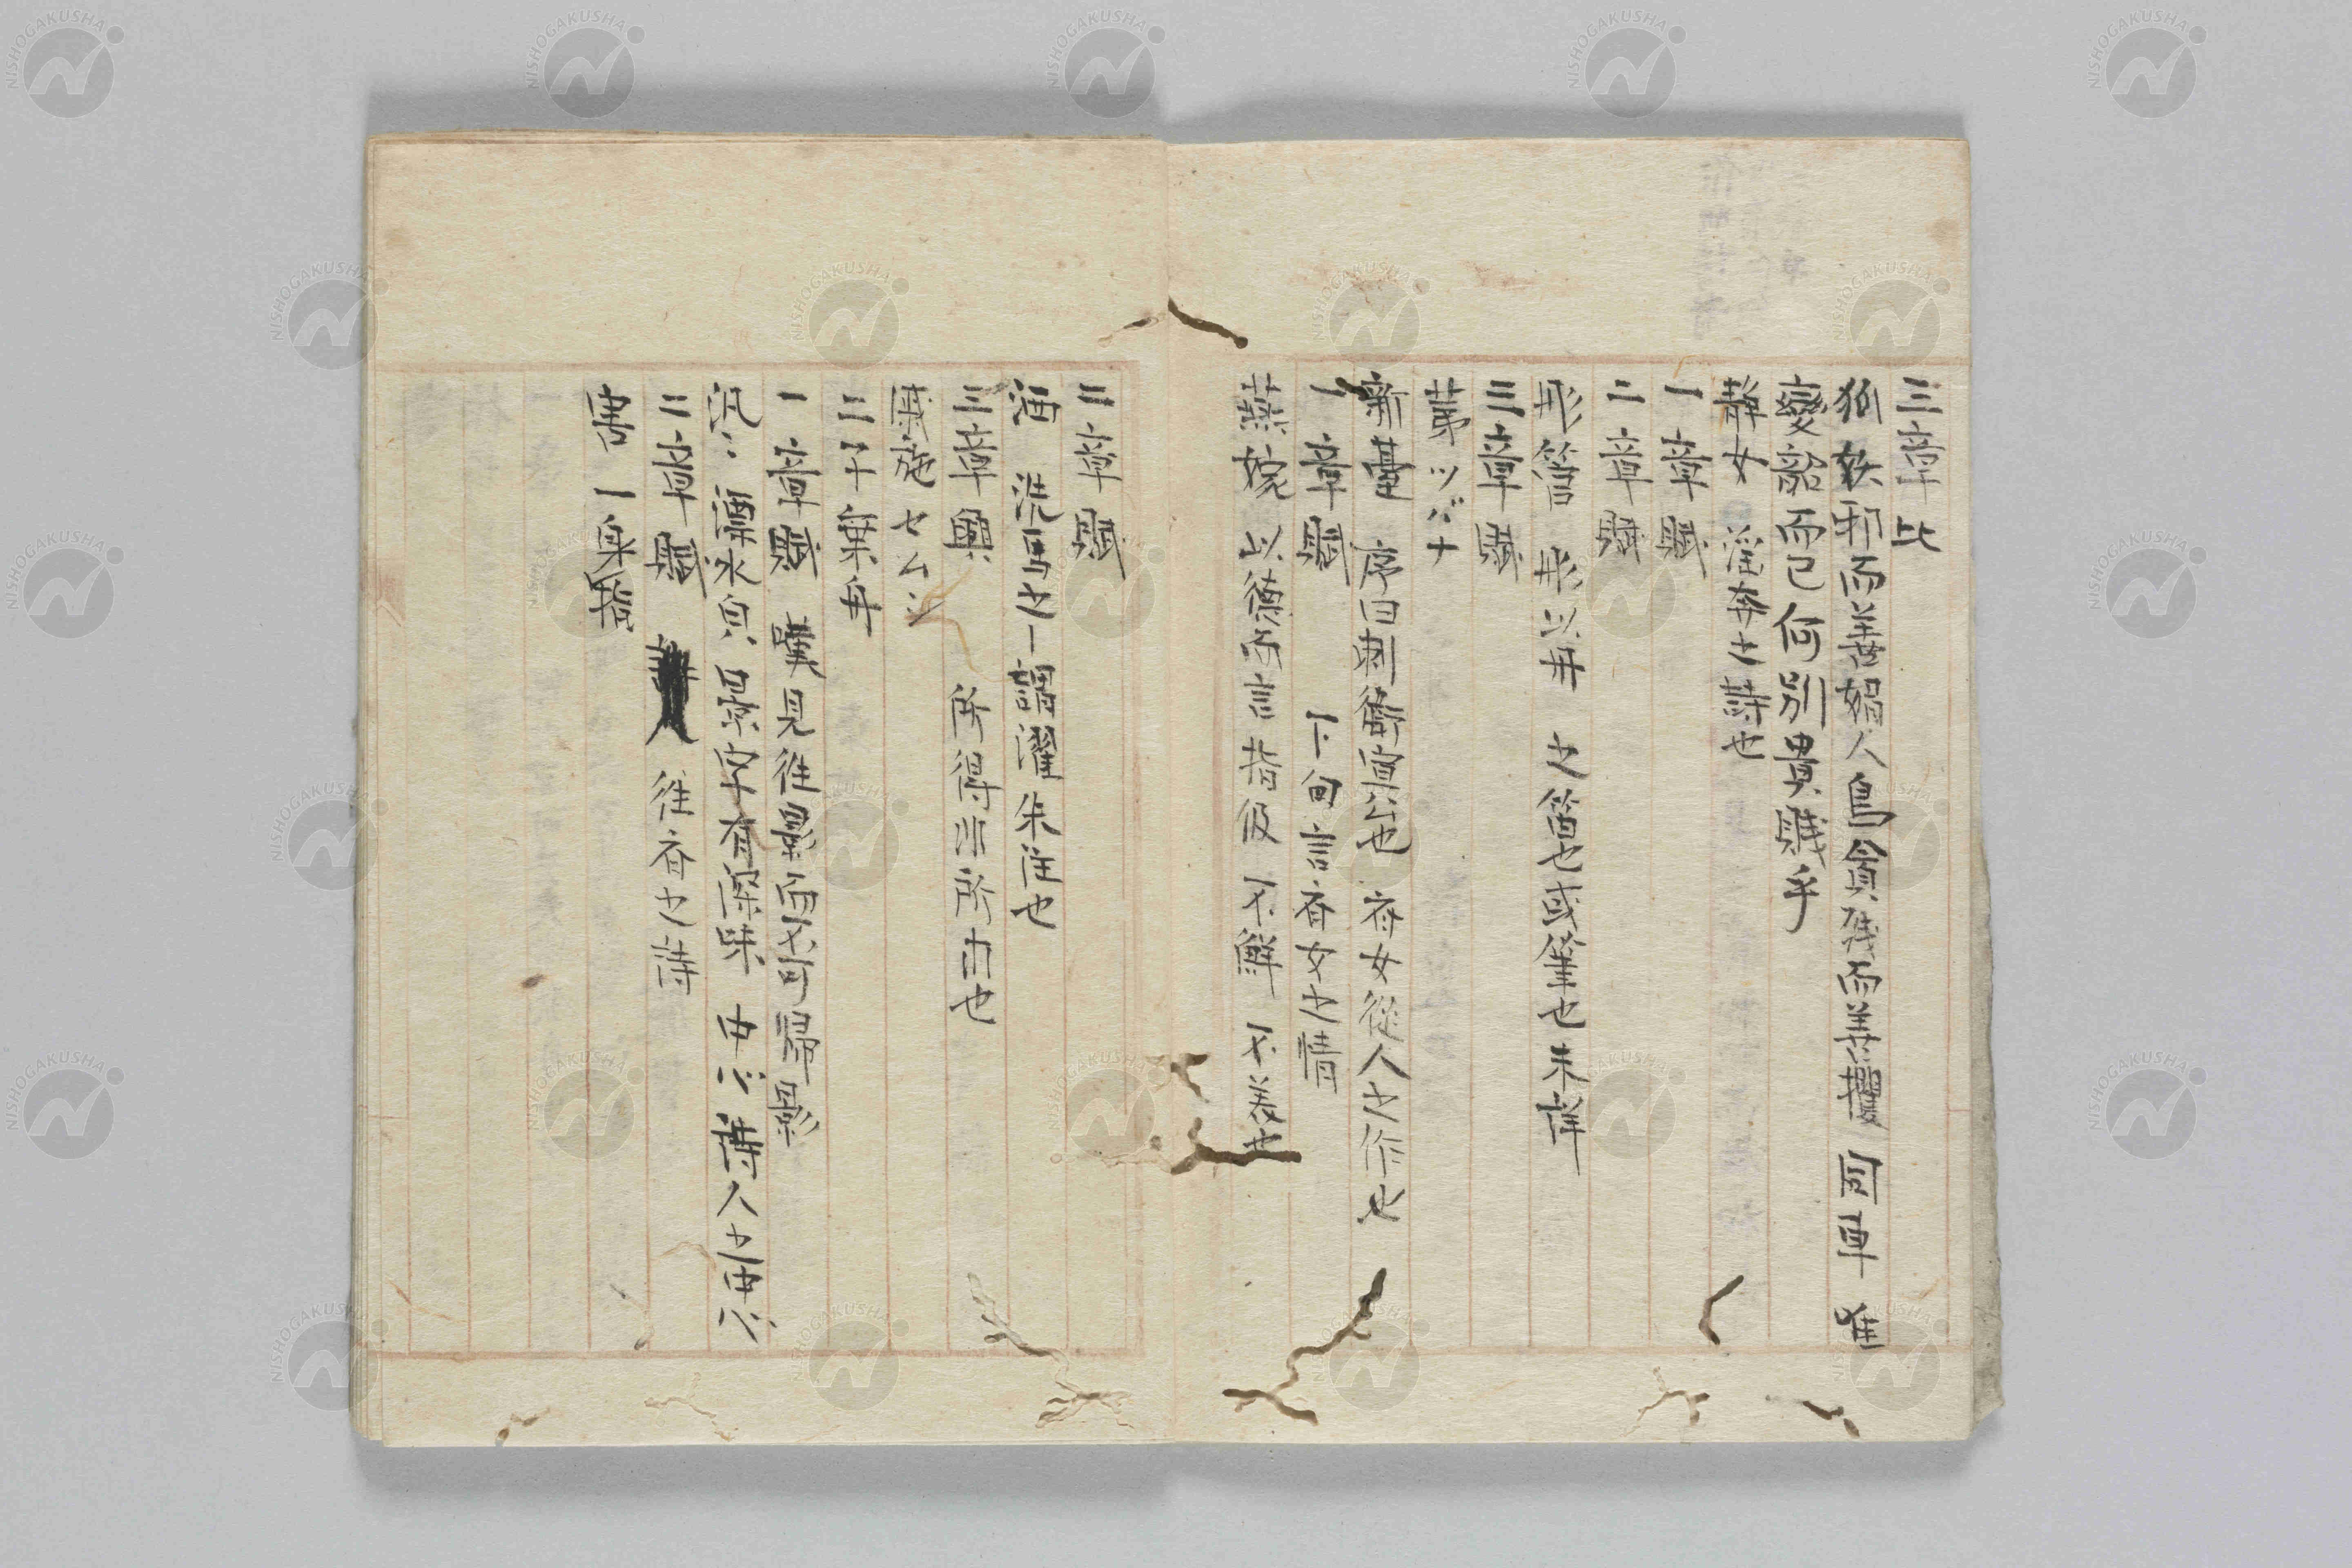 三章比
狐妖邪而善媚人烏貪殘而善攫 同車 進
變詔而已何別貴賤乎
静女 淫奔之詩也
一章賦
二章賦
彤管 彤以丹 之笛也或筆也未詳
三章賦
荑ツバナ
新臺 序曰刺衛宣公也 齊女從人之作也
一章賦 下句言齊女之情
燕婉 以德而言指伋 不鮮 不美也
二章賦
浼 洗馬之一語濯朱注也
三章興 所得非所求也
戚施セムシ
二子乘舟
一章賦 見往
汎〻 漂水皃 景字有深味 中心 詩人之中心
二章賦 往齊之詩
害 一身指
NISHOGAKUSHA